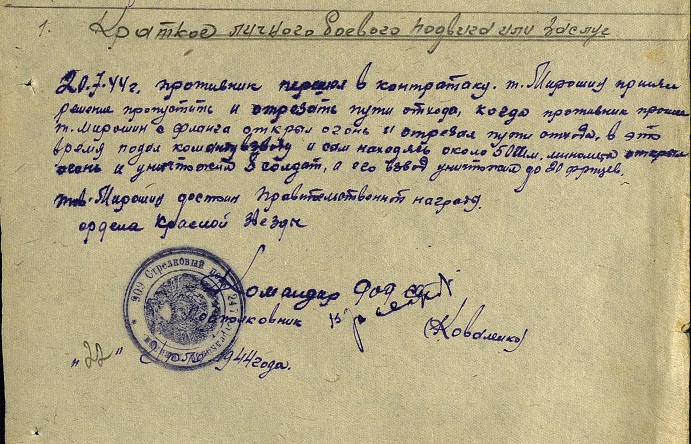 1. Краткое личного боевого подвига или заслуг
20.7.44г. противник перешел в контратаку. т. Мирошин принял
решение пропустить и отрезать пути отхода, когда противник прошел
т. Мирошин с фланга открыл огонь и отрезал пути отхода, в это
время подал команду взводу и сам находясь около 50мм. миномета открыл
огонь и уничтожил 8 солдат, а его взвод уничтожил до 20 фрицев.
тов. Мирошин достоин Правительственной награды
ордена Красной Звезды
Командир 909 сп
Подполковник
(Коваленко)
"22" 1944 года.
909 Стрелковый полк 247